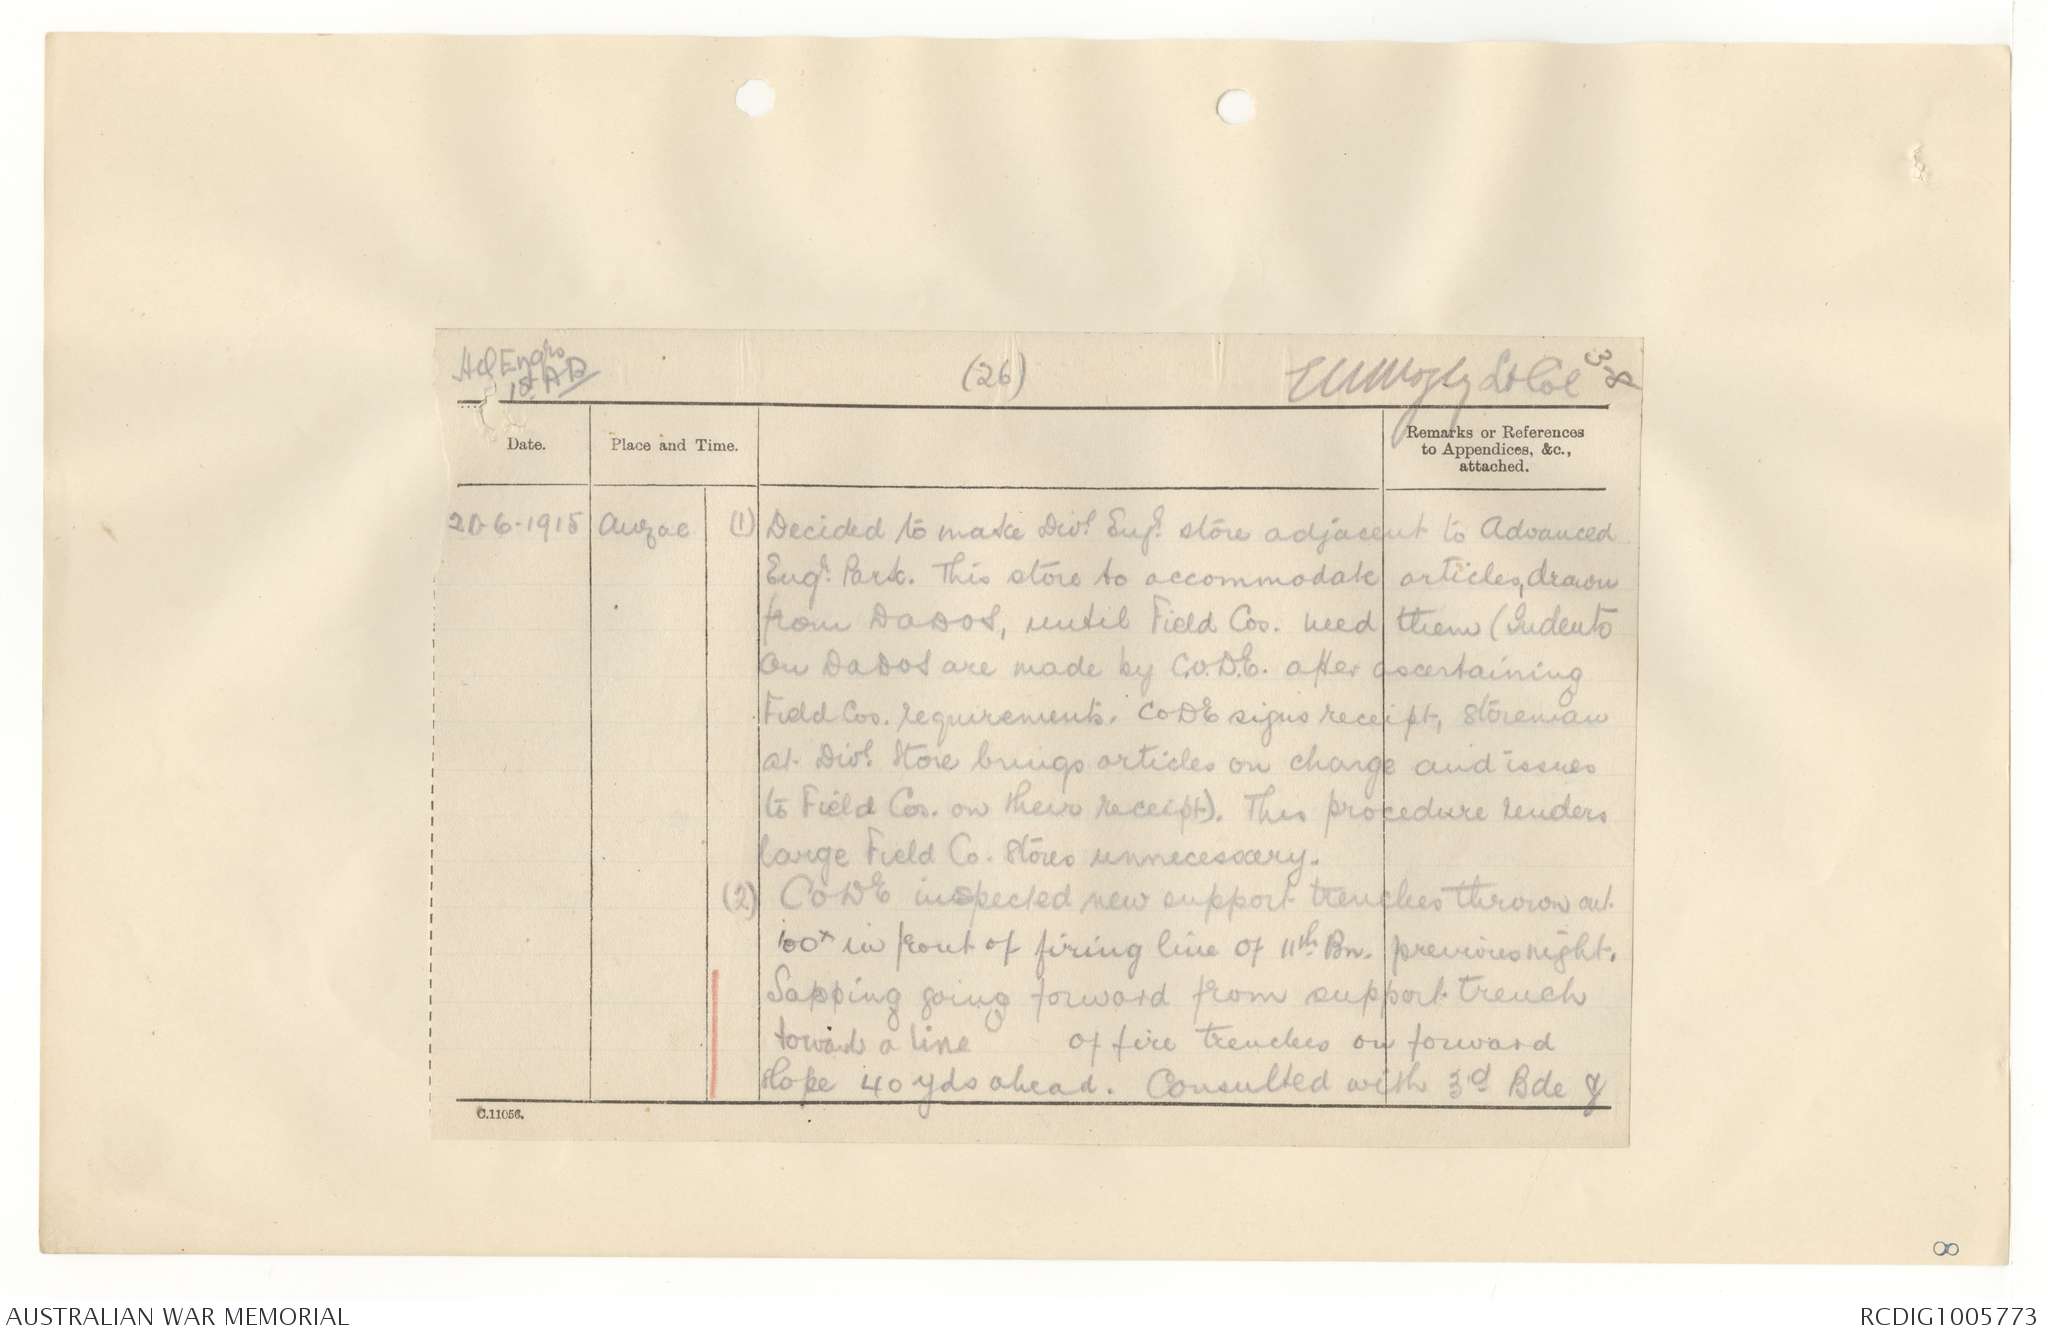 Hd Engrs
1st AD
(26)
Lt Col
38
Date.
Place and Time.
Remarks or References
to Appendices, &c.,
attached.
20-6-1915 Anzac (1) Decided to make Divl. Engr. store adjacent to Advanced
Engr. Park. This store to accommodate articles, drawn
from DADOS, until Field Cos. need them (Indents
on DADOS are made by C.O.D.E. after ascertaining
Field Cos. requirements. CODE signs receipt, storeman
at Divl. Store brings articles on charge and issues
to Field Cos. on their receipt). This procedure renders
large Field Co. stores unnecessary.
(2) CODE inspected new support trenches thrown out
100x in front of firing line of 11th Bn. previous night.
Sapping going forward from support trench
towards a line of fire trenches on forward
slope 40 yds ahead. Consulted with 3rd Bde &
C.11056.
8
AUSTRALIAN WAR MEMORIAL
RCDIG1005773